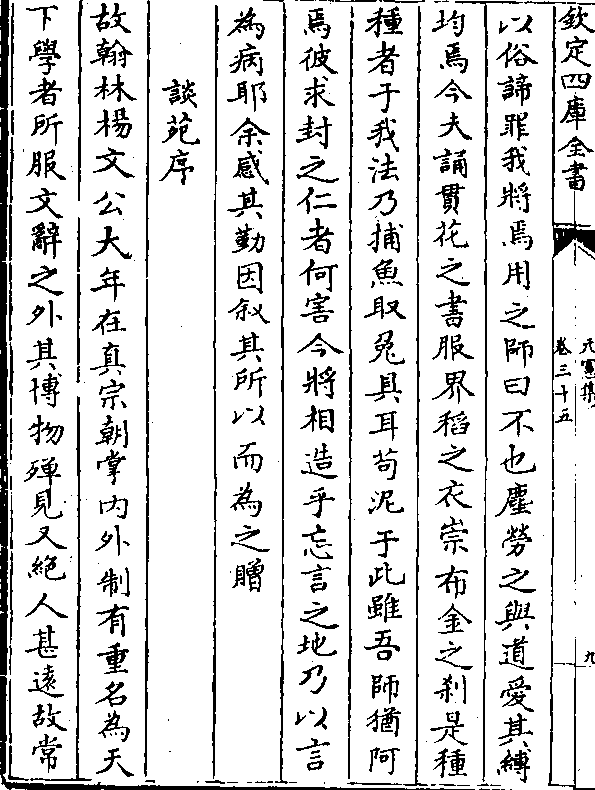 欽定四庫全書
元憲集
卷三十五
九
以俗諦罪我將焉用之師曰不也塵勞之與道愛其縛
均焉今夫誦貫花之書服界稻之衣崇布金之刹是種
種者于我法乃捕魚取兔具耳苟泥于此雖吾師猶阿
焉彼求封之仁者何害今將相造乎忘言之地乃以言
為病耶余感其勤因叙其所以而為之贈
談苑序
故翰林楊文公大年在真宗朝掌内外制有重名為天
下學者所服文辭之外其博物殫見又絶人甚遠故常